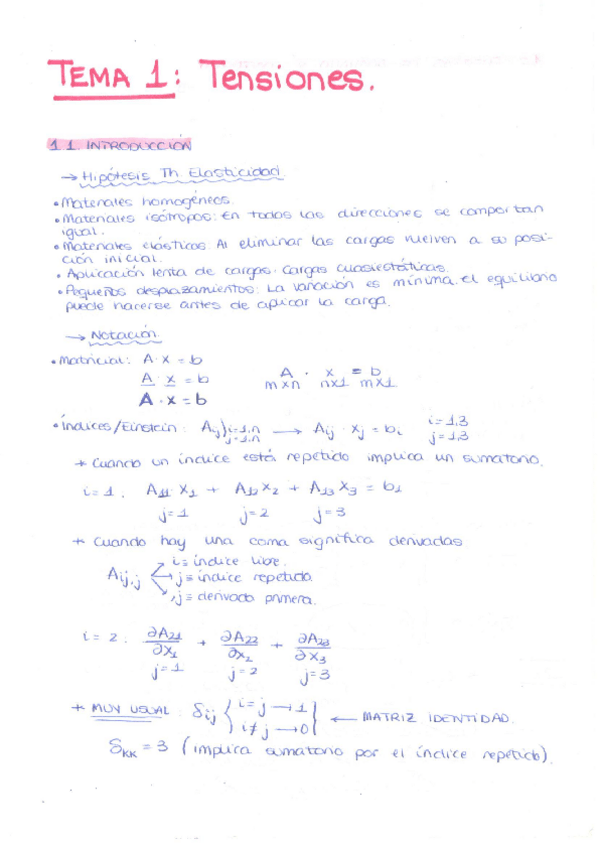 TEMA 1: Tensiones.
1.1. INTRODUCCIÓN
→ Hipótesis Th Elasticidad
• Materiales homogéneos.
• Materiales isótropos: En todas las direcciones se comportan
igual.
• Materiales elásticos Al eliminar las cargas vuelven a su posi-
ción inicial.
• Aplicación lenta de cargas. Cargas cuasiestáticas.
• Pequeños desplazamientos: La variación es mínima. El equilibrio
puede hacerse antes de aplicar la carga.
→ Notación.
• Matricial: A · x = b
A · x = b
A · x = b
A · x = b
m×n n×1 m×1
• Índices/Einstein: Aij}i=1,n j=1,n → Aij · xj = bi i=1,3 j=1,3
+ Cuando un índice está repetido implica un sumatorio.
i=1. A11 x1 + A12 x2 + A13 x3 = b1
j=1 j=2 j=3
+ Cuando hay una coma significa derivadas
Aij,j
i ≡ índice libre.
j ≡ índice repetido
,j ≡ derivada primera.
i=2: ∂A21/∂x1 + ∂A22/∂x2 + ∂A23/∂x3
j=1 j=2 j=3
+ MUY USUAL: δij { i=j → 1 i≠j → 0 } ← MATRIZ IDENTIDAD.
δKK = 3 (implica sumatorio por el índice repetido).